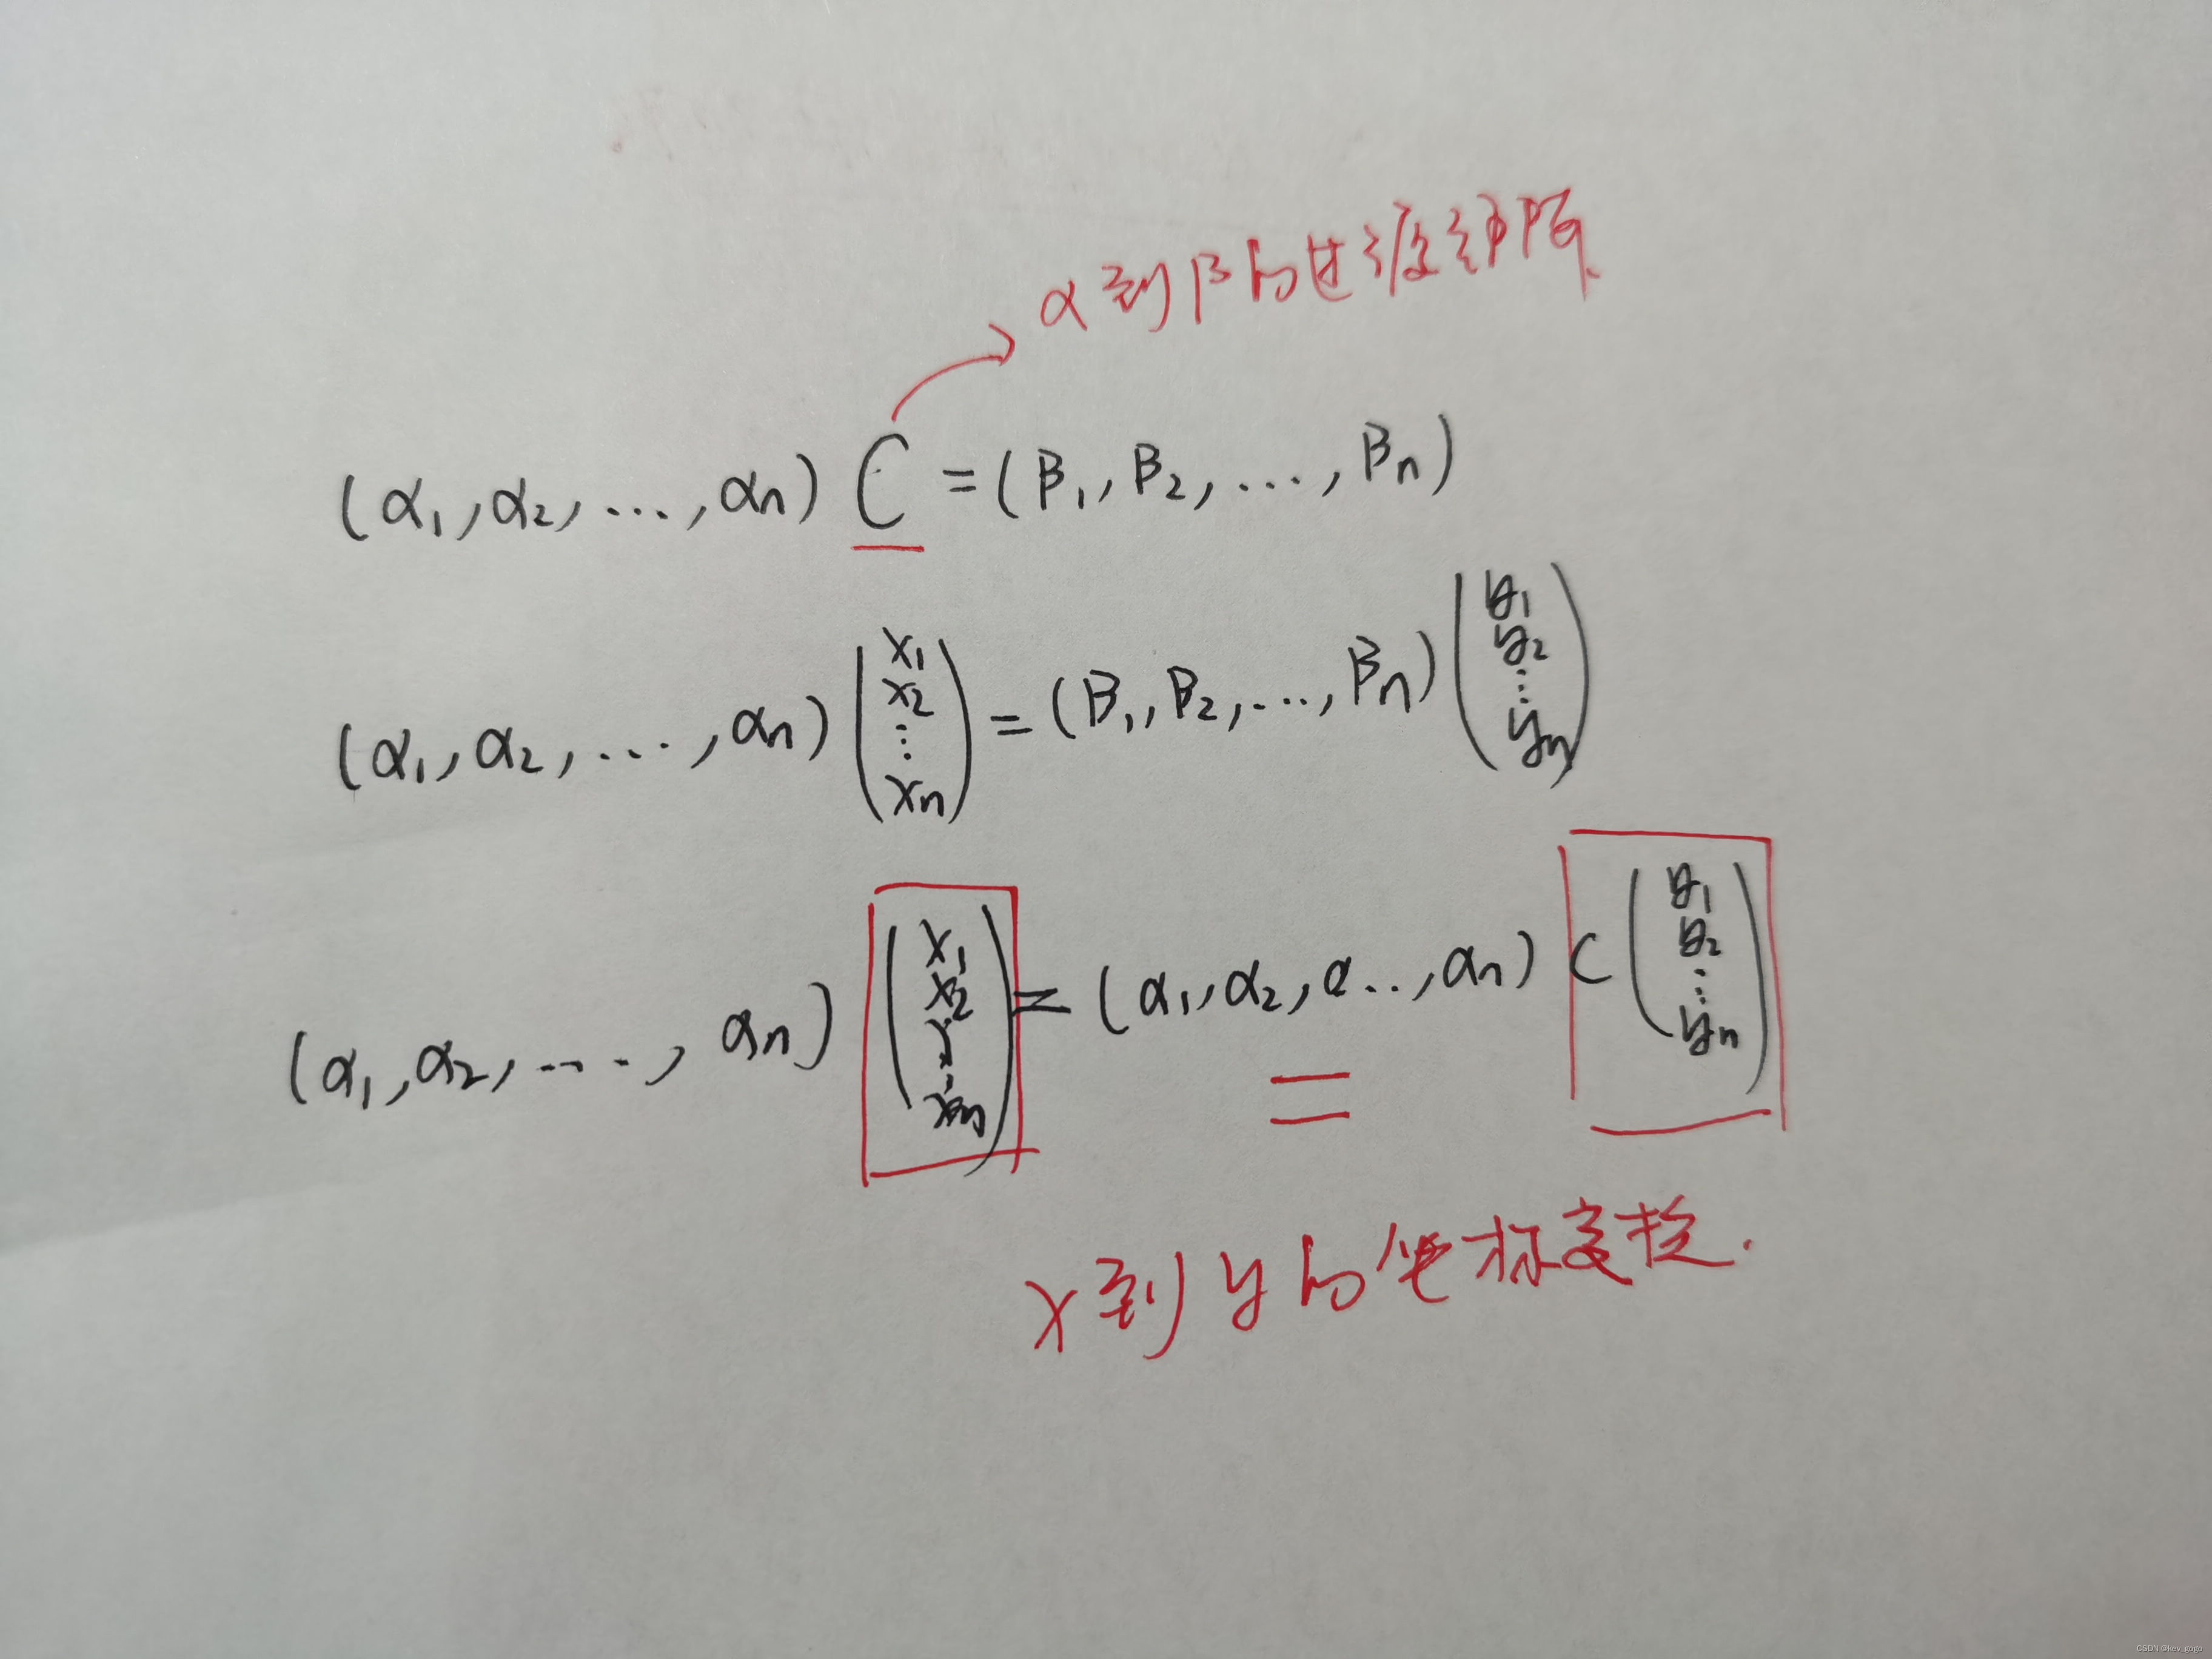 α到β的过渡矩阵
(α₁,α₂,...,αn) C = (β₁,β₂,...,βn)
(α₁,α₂,...,αn) (x₁ x₂ ⋮ xn) = (β₁,β₂,...,βn) (y₁ y₂ ⋮ yn)
(α₁,α₂,.....,αn) (x₁ x₂ ⋮ xn) = (α₁,α₂,α..,αn) C (y₁ y₂ ⋮ yn)
=
x到y的坐标变换.
CSDN @kev_gogo